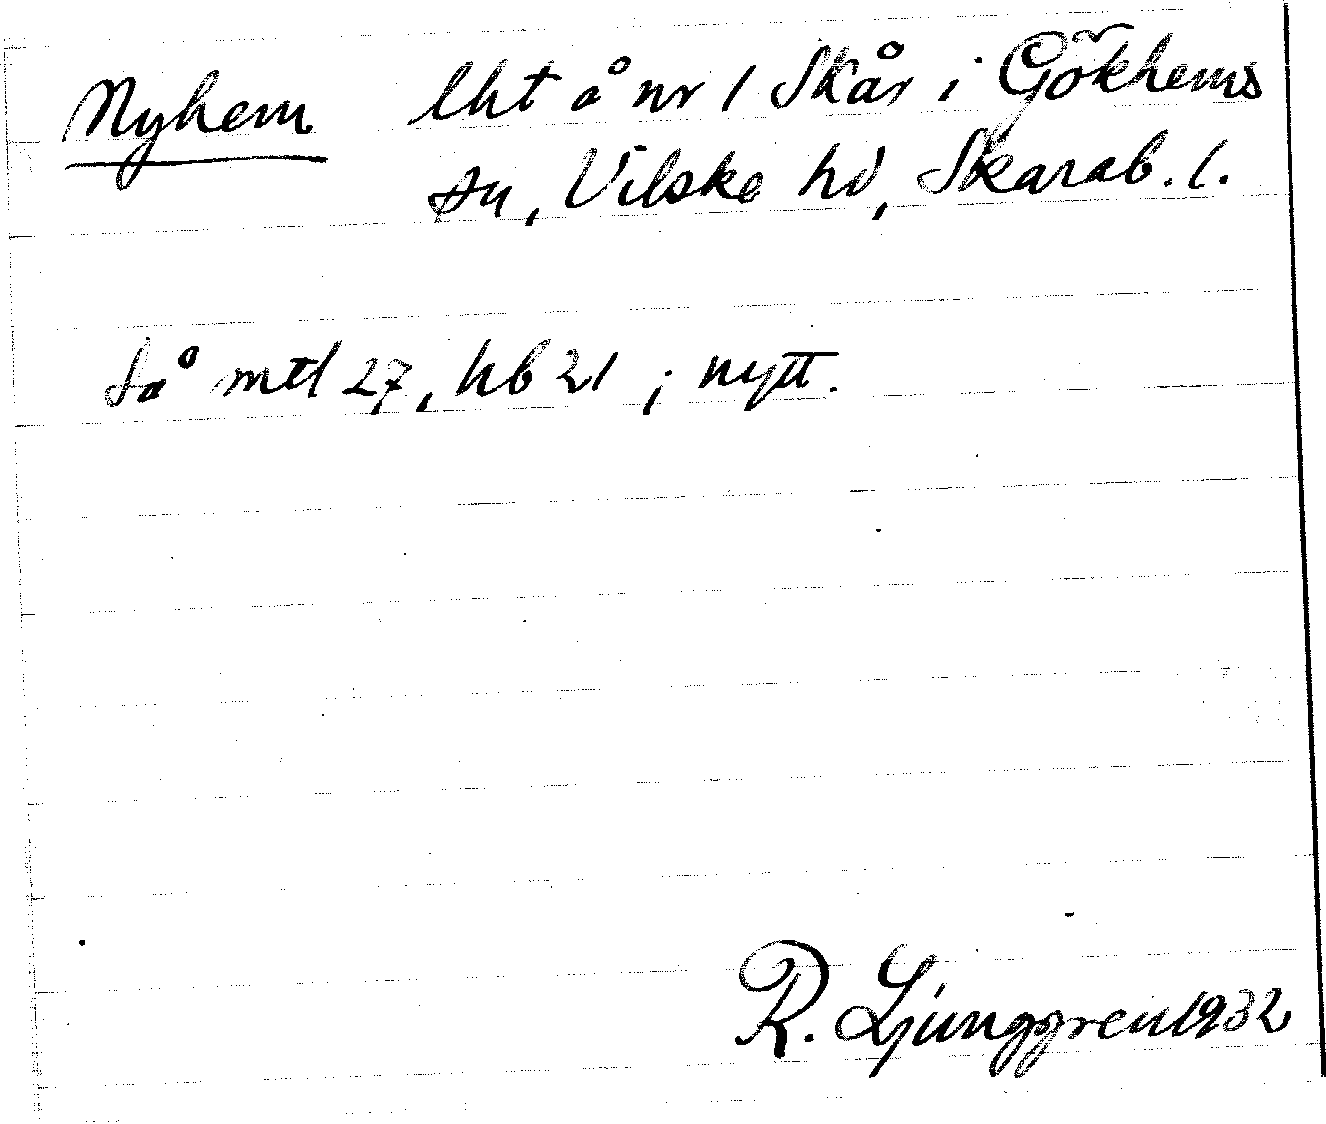 Nyhem lht å nr 1 Skår i Gökhems
sn, Vilske hd, Skarab. l.
Så mtl 27, hb 21 ; nytt.
R. Ljunggren 1932